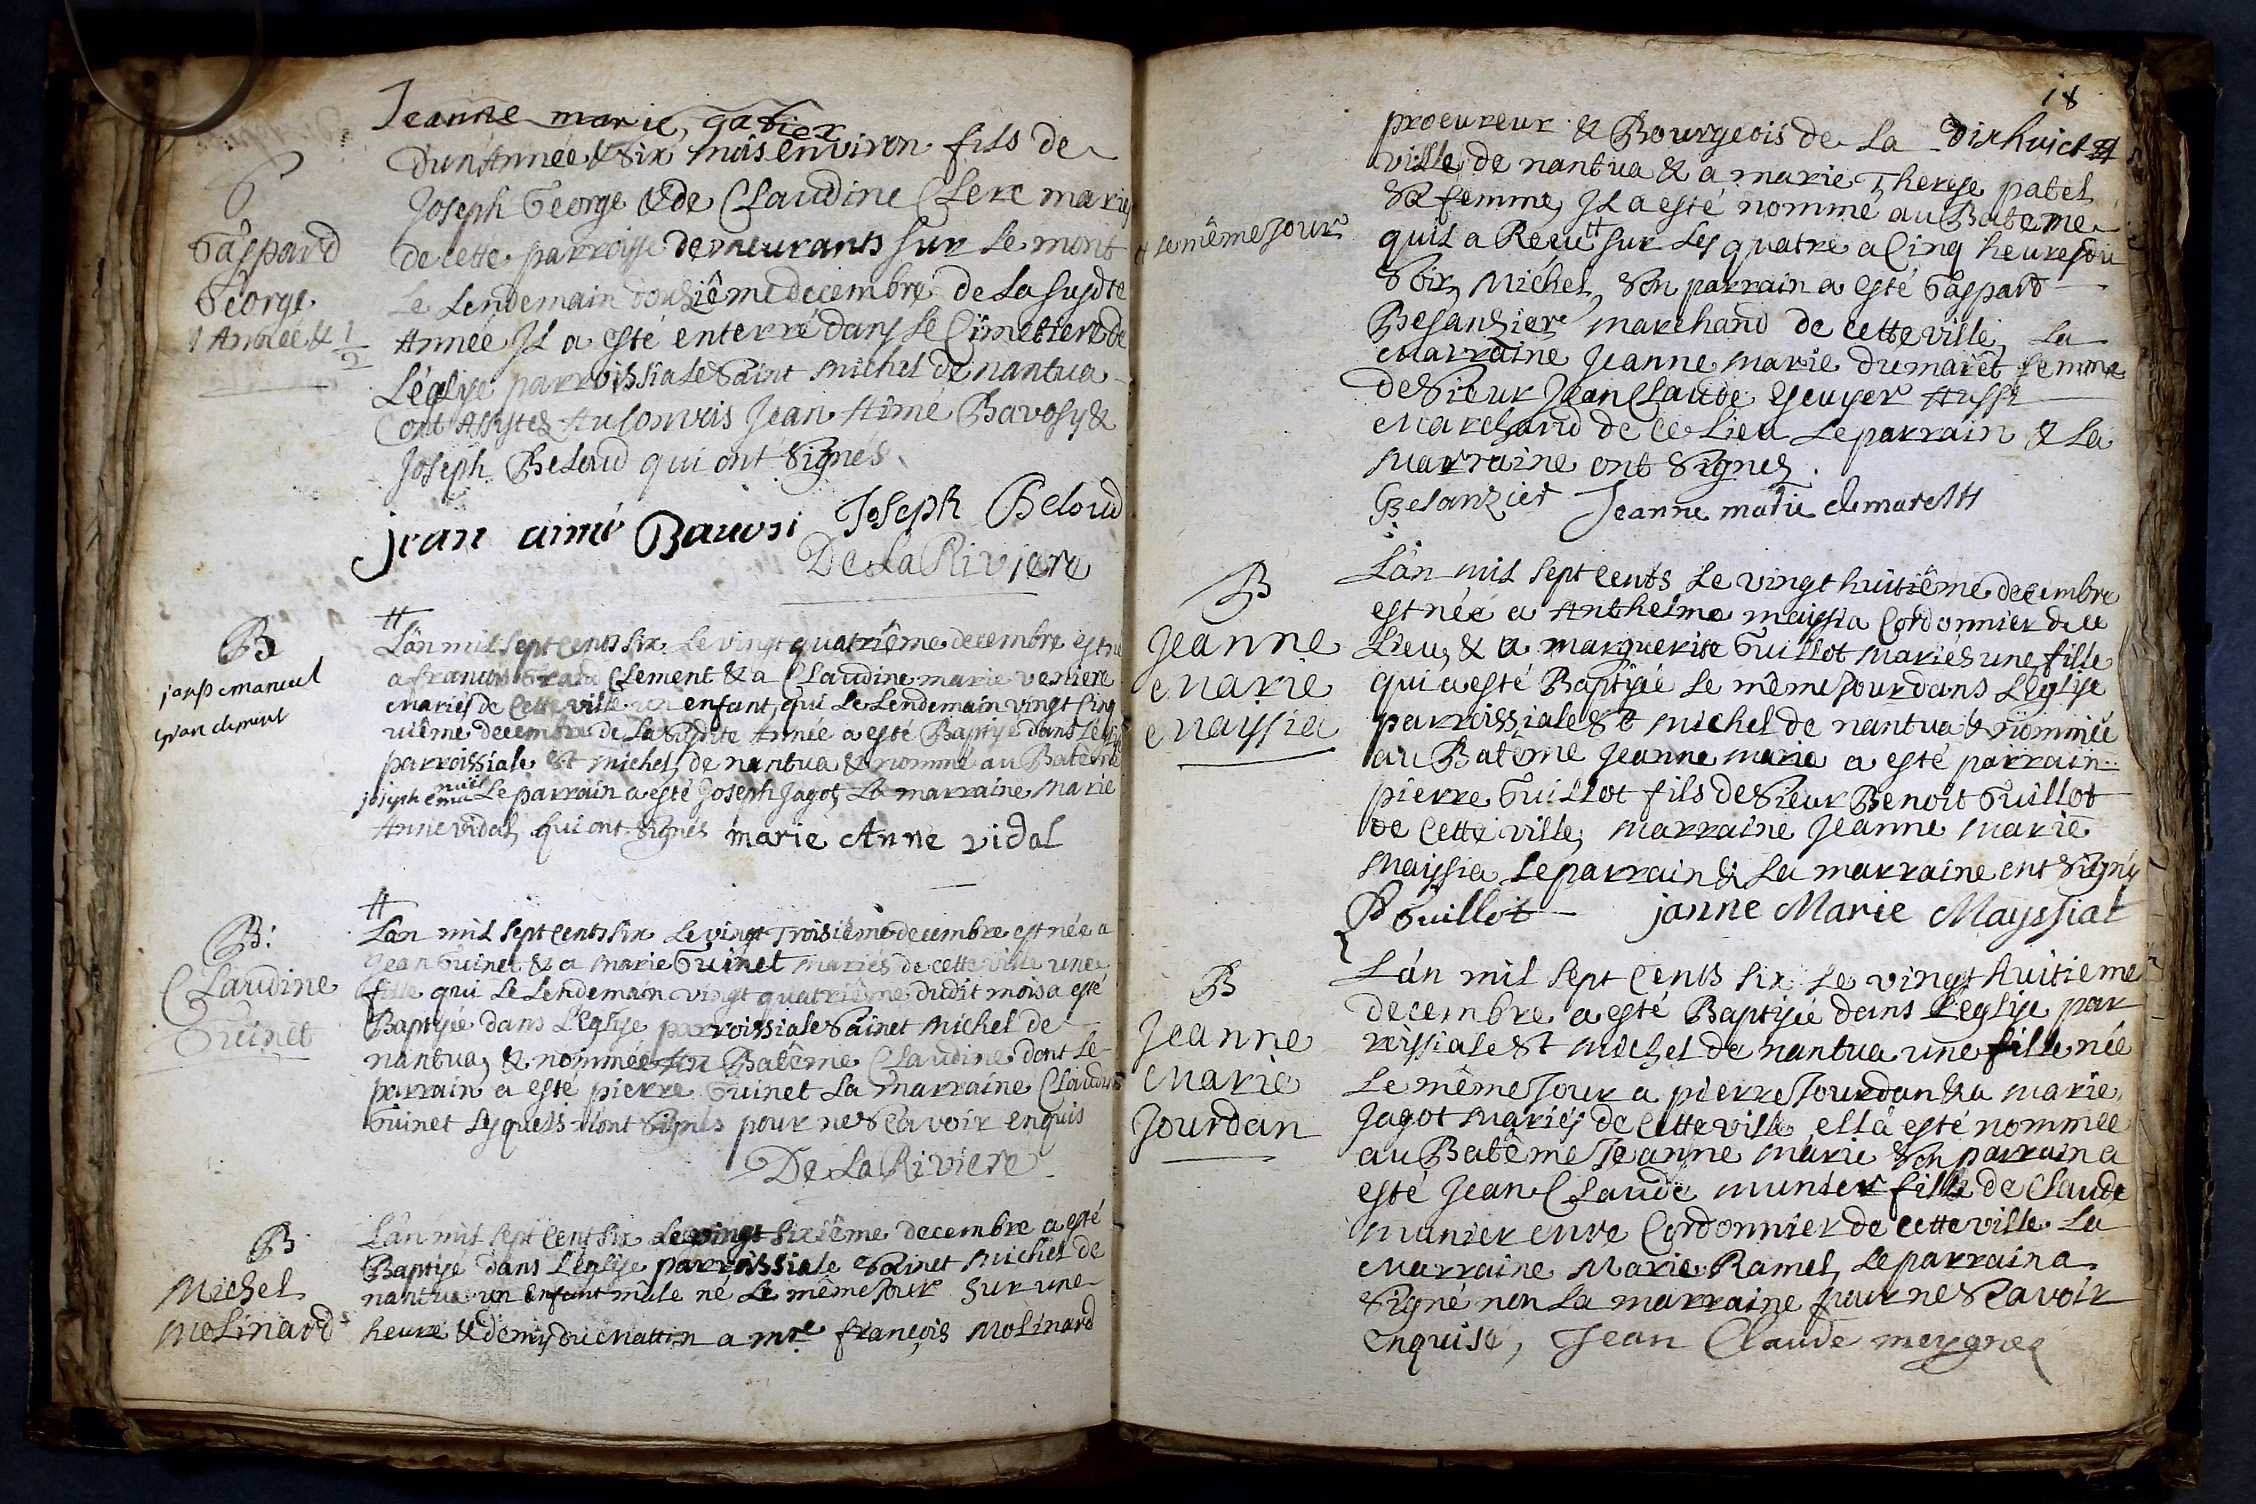 Jeanne marie gabier
D'un Année & Six mois environ fils de
Joseph George & de Claudine Clerc mariés
de cette parroisse demeurants sur le mont
Le Lendemain douzième decembre de La susdte
Année Il a esté enterré dans le Cimetiere de
L'église parroissiale Saint Michel de nantua
ont Assistez Au convois Jean Aimé Bavosy &
Joseph Beloud qui ont Signés
jean aimé Bauosi Joseph Beloud
De La Riviere
Gaspard
George
1 Année & 1/2
B
josep emanuel
gran clement
L'an mil sept Cents six Le vingt quatrième decembre est né
a francois Grand Clement & a Claudine marie veniere
Mariés de Cette ville un enfant, qui Le Lendemain vingt Cinq
uième decembre de La Susdite Année a esté Baptisé dans L'église
parroissiale St Michel de nantua & nommé au Batême
joseph emanuel Le parrain a esté Joseph Jagot La marraine Marie
Anne vidal qui ont Signés marie Anne vidal
B:
Claudine
Guinet
L'an mil sept Cents six Le vingt Troisième decembre est née a
Jean Guinet & a Marie Guinet mariés de cette ville une
fille qui Le Lendemain vingt quatrième dudit mois a esté
Baptisée dans L'Eglise parroissiale Sainct Michel de
nantua, & nommée Au Batême Claudine dont Le
parrain a esté pierre Guinet La Marraine Claudine
Guinet Lesquels n'ont Signés pour ne Scavoir enquis
De La Riviere
B
Michel
Molinard
L'an mil sept Cent six Le vingt sixième decembre a esté
Baptisé dans L'église parroissiale Sainct Michel de
nantua un Enfant mâle né Le même Jour Sur une
heure & demy du Mattin a mre françois Molinard
18
procureur & Bourgeois de La Dixhuict
ville de nantua & a marie Therese patel
Sa femme, Il a esté nommé au Bateme
quil a Receu sur Les quatre a Cinq heures du
le même Jour
Soir, Michel, Son parrain a esté Gaspard
Besanzier marchand de cette ville, La
Marraine Jeanne Marie Dumarêt femme
de Sieur Jean Claude Escuyer Aussi
Marchand de ce Lieu Le parrain & La
Marraine ont Signez.
Besanzier Jeanne marie dumarest
B
Jeanne
Marie
Mayssia
L'an mil sept Cents Le vingt huitième decembre
est née a Anthelme mayssia Cordonnier de ce
Lieu, & a marguerite Guillot mariés une fille
qui a esté Baptisée Le même Jour dans L'Eglise
parroissiale St Michel de nantua & nommée
au Batême Jeanne marie a esté parrain
pierre Guillot fils de Sieur Benoit Guillot
de Cette ville, Marraine Jeanne Marie
Mayssia Le parrain & La marraine ont Signés
P Guillot janne Marie Mayssiat
B
Jeanne
Marie
Jourdan
L'an mil sept Cents six Le vingt huitieme
decembre a esté Baptisée dans L'eglise par
roissiale St Michel de nantua une fille née
Le même Jour a pierre Jourdan & a Marie
Jagot Mariés de Cette ville, ell'a esté nommée
au Batême Jeanne Marie Son parrain a
esté Jean Claude Munier fils de Claude
Munier Cordonnier de cette ville. La
Marraine Marie Ramel, Le parrain a
Signé non La marraine pour ne Scavoir
enquise, Jean Claude meygnes